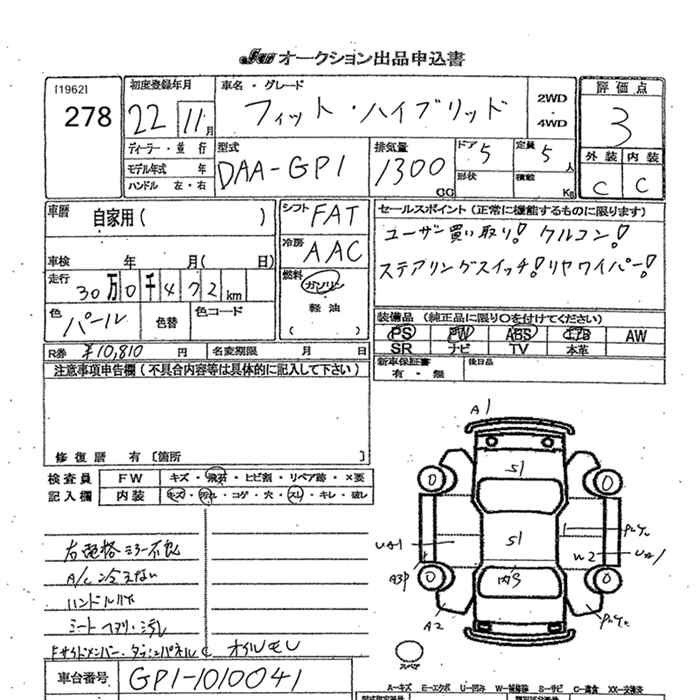 JU オークション出品申込書
[1962]
278
初度登録年月
22 11月
車名・グレード
フィット・ハイブリッド
2WD
・
4WD
評価点
3
外装 内装
C C
ディーラー・並行
モデル年式 年
ハンドル 左・右
型式
DAA-GP1
排気量
1300
CC
ドア 5
定員 5 人
形状
積載
Kg
車歴
自家用( )
車検 年 月( 日)
走行
30万0千472km
色
パール
色替
色コード
シフト FAT
冷房
AAC
燃料
ガソリン
軽油
( )
セールスポイント(正常に機能するものに限ります)
ユーザー買い取り! クルコン!
ステアリングスイッチ! リヤワイパー!
装備品 (純正品に限り○を付けてください)
PS PW ABS エアB AW
SR ナビ TV 本革
新車保証書
有・無
後日品
R券 ¥10,810 円
名変期限 月 日
注意事項申告欄(不具合内容等は具体的に記入して下さい)
修復歴 有〔箇所 〕
検査員
記入欄
FW キズ・飛石・ヒビ割・リペア跡・×要
内装 キズ・汚れ・コゲ・穴・スレ・キレ・破レ
右電格ミラー不良
A/C冷えない
シートヘタリ・汚れ
オイルモレ
車台番号 GP1-1010041
A1
S1
S1
内3
UA1
A3P
A2
W2
UA1
0
0
0
0
スペア
A-キズ E-エクボ U-凹み W-補修跡 S-サビ C-腐食 XX-交換済